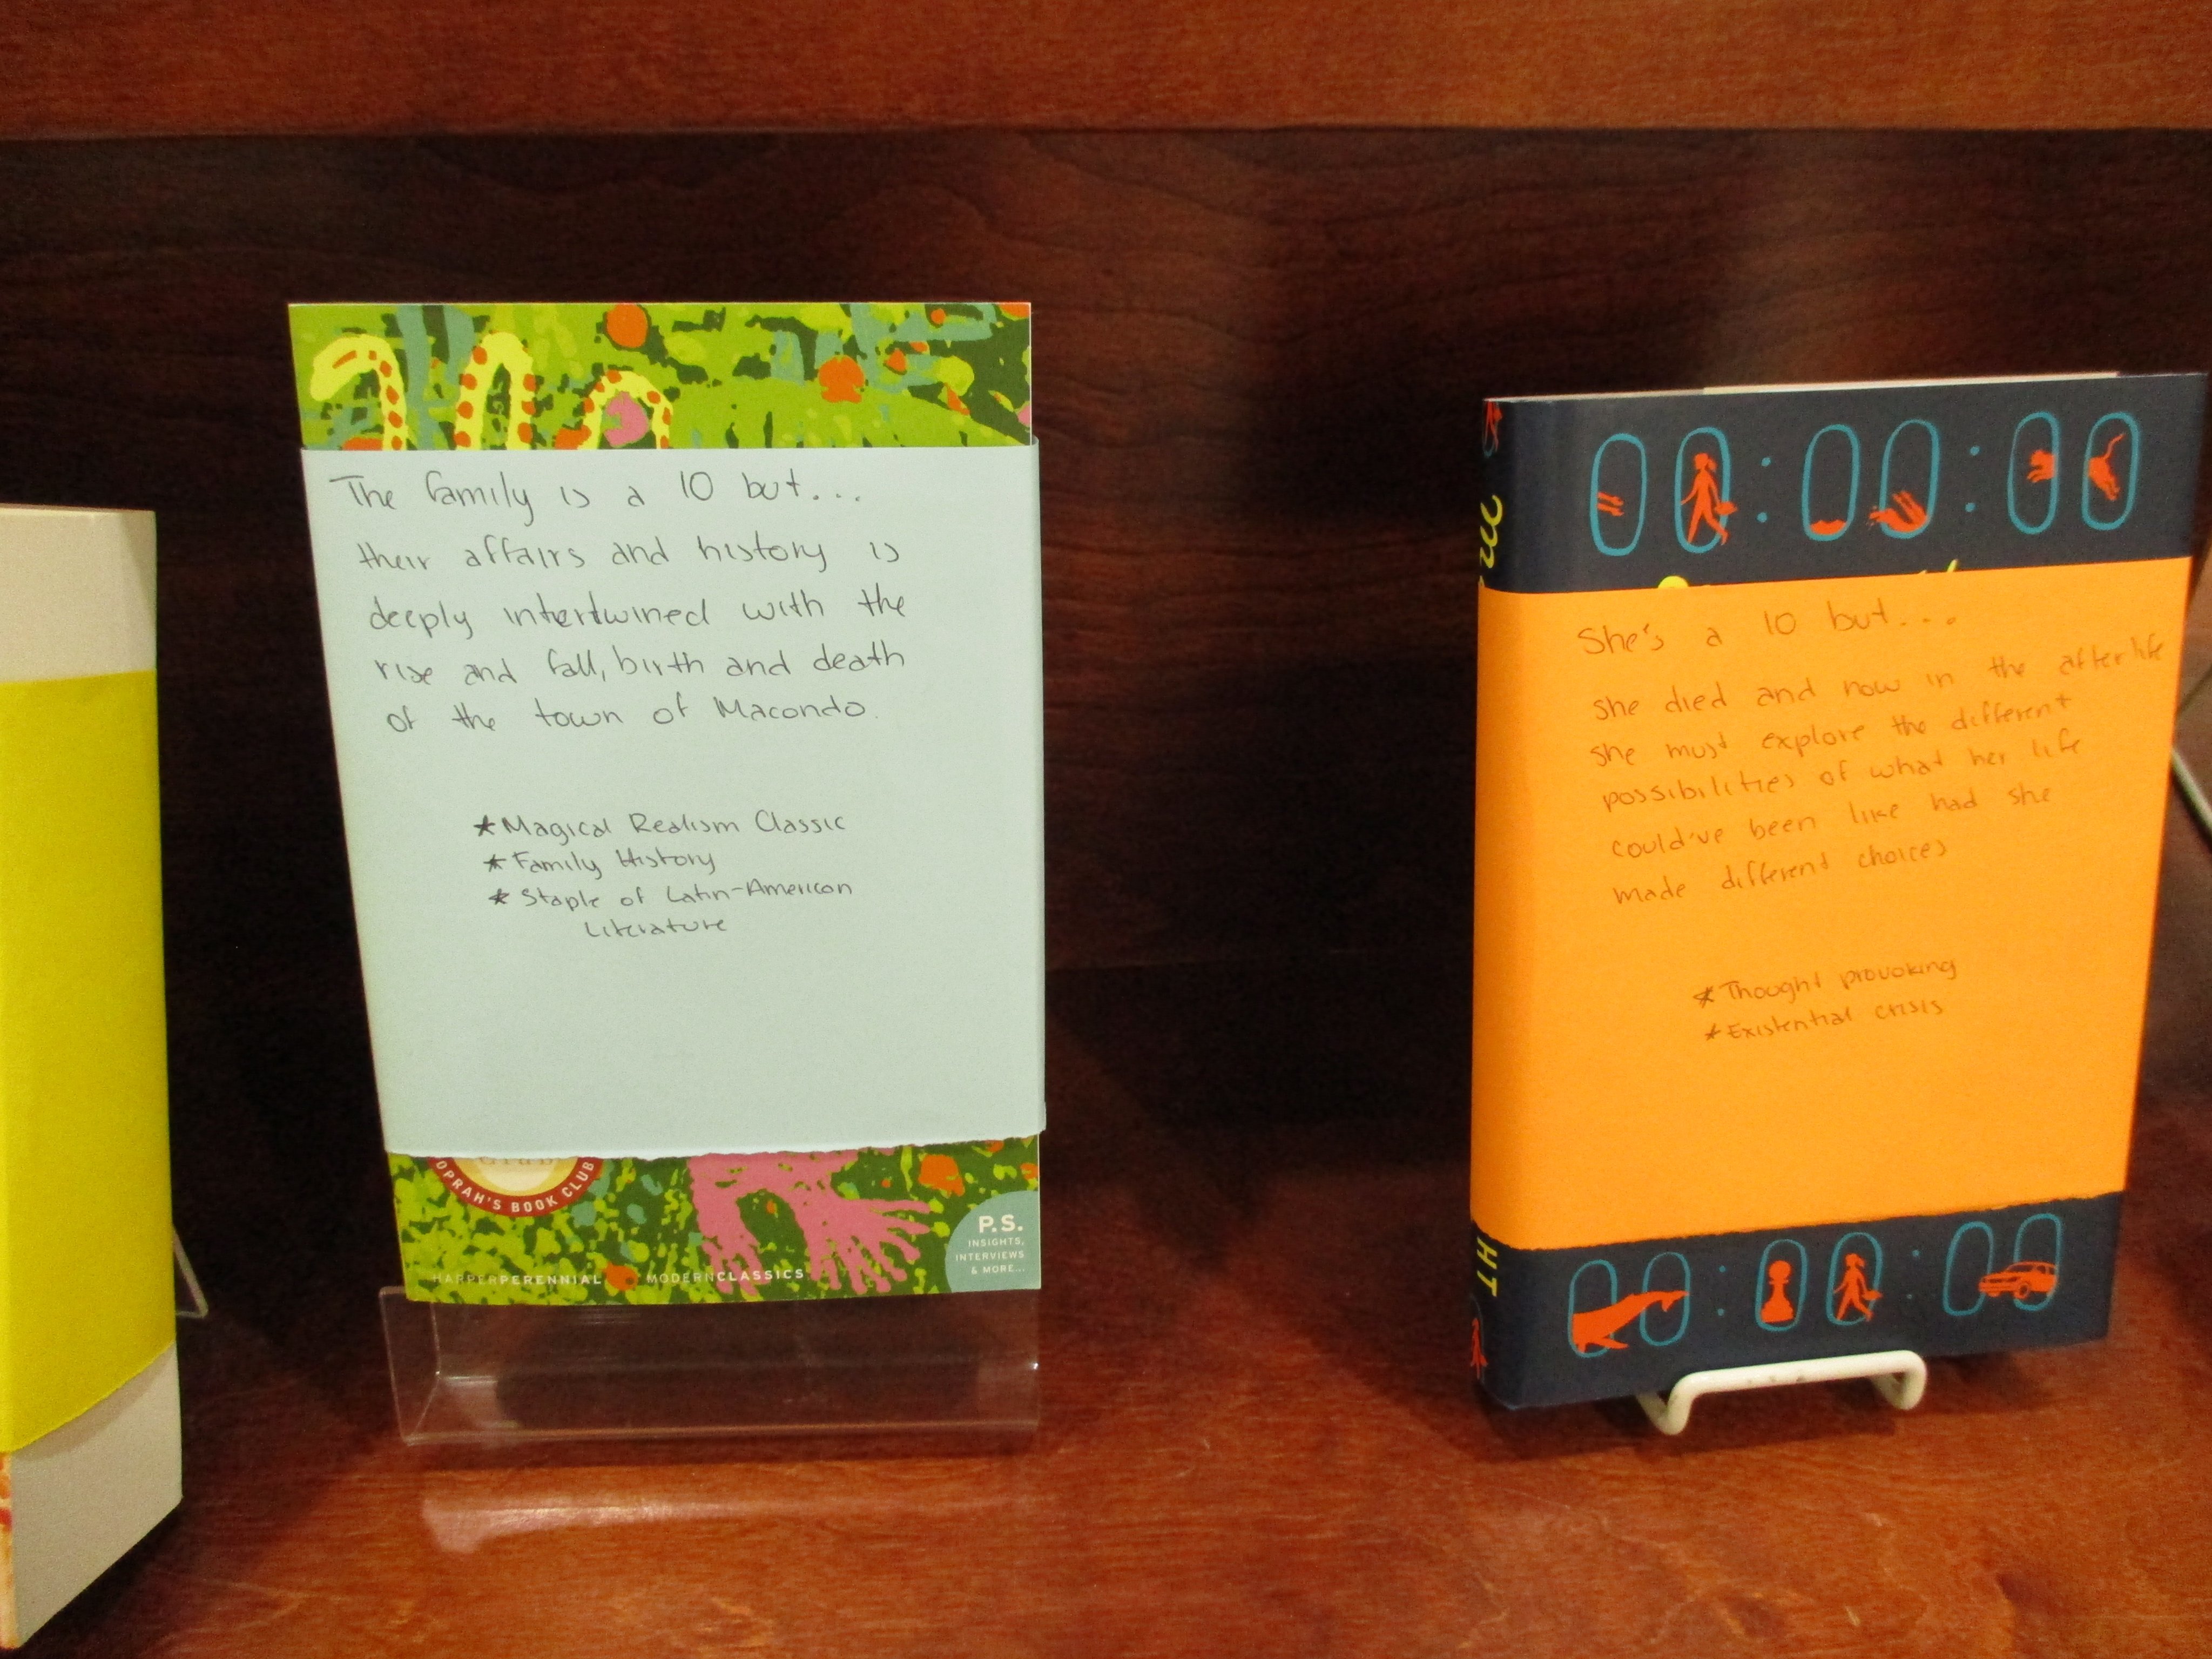 The family is a 10 but...
their affairs and history is
deeply intertwined with the
rise and fall, birth and death
of the town of Macondo.
*Magical Realism Classic
*Family History
*Staple of Latin-American
Literature
OPRAH'S BOOK CLUB
HARPERPERENNIAL MODERNCLASSICS
P.S.
INSIGHTS,
INTERVIEWS
& MORE...
She's a 10 but...
she died and now in the afterlife
she must explore the different
possibilities of what her life
could've been like had she
made different choices
*Thought provoking
*Existential crisis
HT